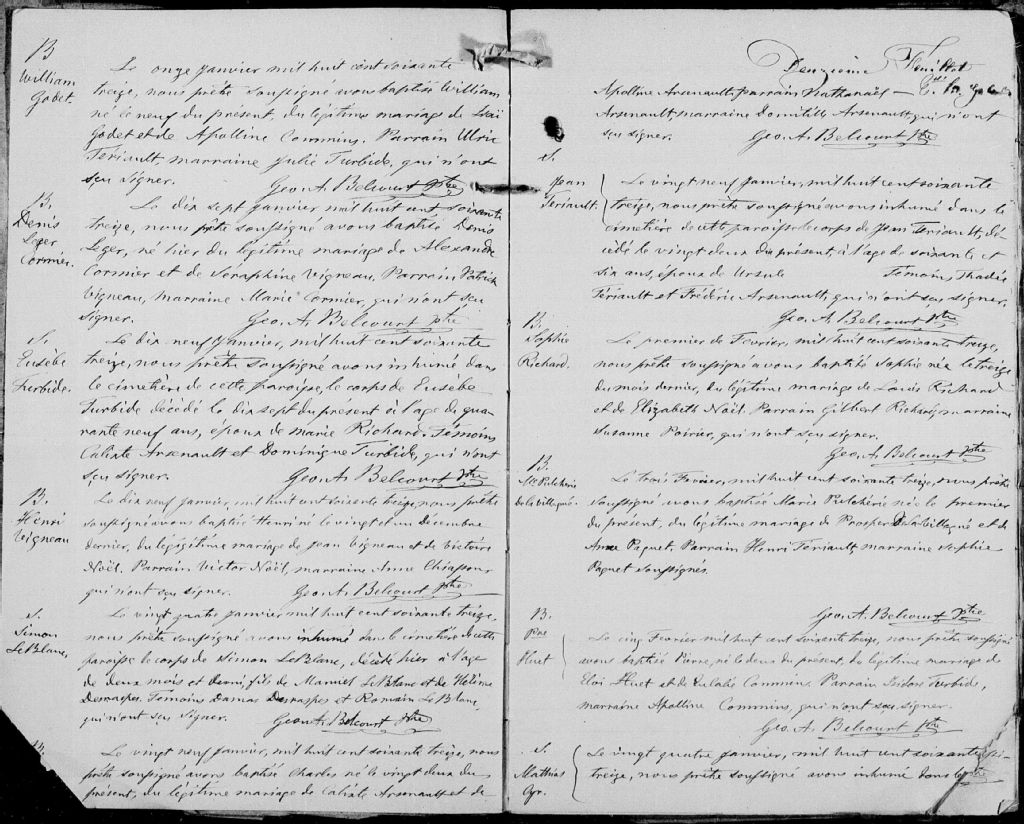 B
William
Godet.
Le onze Janvier mil huit cent soixante
treize, nous prêtre soussigné avons baptisé William,
né le neuf du présent, du légitime mariage de Isaï
Godet et de Apolline Commins. Parrain Ulric
Tériault, marraine Julie Turbide, qui n'ont
seu signer.
Geo. A. Belcourt Ptre
B.
Denis
Leger
Cormier.
Le dix sept Janvier mil huit cent soixante
treize, nous prêtre soussigné avons baptisé Denis
Leger, né hier du légitime mariage de Alexandre
Cormier et de Séraphine Vigneau. Parrain Patrick
Vigneau, marraine Marie Cormier, qui n'ont seu
signer.
Geo. A. Belcourt ptre
S.
Eusèbe
Turbide.
Le dix neuf Janvier, mil huit cent soixante
treize, nous prêtre soussigné avons inhumé dans
le cimetière de cette paroisse, le corps de Eusèbe
Turbide décédé le dix sept du présent à l'age de qua-
rante neuf ans, époux de Marie Richard. Témoins
Calixte Arsenault et Dominique Turbide, qui n'ont
seu signer.
Geo. A. Belcourt Ptre
B.
Henri
Vigneau
Le dix neuf Janvier, mil huit cent soixante treize, nous prêtre
soussigné avons baptisé Henri né le vingt et un Décembre
dernier, du légitime mariage de Jean Vigneau et de Victoire
Noël. Parrain Victor Noël, marraine Anne Chiasson,
qui n'ont seu signer.
Geo. A. Belcourt Ptre
S.
Simon
LeBlanc,
Le vingt quatre Janvier, mil huit cent soixante treize,
nous prêtre soussigné avons inhumé dans le cimetière de cette
paroisse le corps de Simon LeBlanc, décédé hier à l'age
de deux mois et demi, fils de Manuel LeBlanc et de Hélène
Desraspes. Temoins Damas Desraspes et Romain LeBlanc,
qui n'ont seu signer.
Geo. A. Belcourt Ptre
Le vingt neuf Janvier, mil huit cent soixante treize, nous
prêtre soussigné avons baptisé Charles né le vingt deux du
présent, du légitime mariage de Calixte Arsenault et de
Deuxième Feuillet
Apolline Arsenault, parrain Nathanaël
Arsenault, marraine Domitilde Arsenault, qui n'ont
seu signer.
Geo. A. Belcourt Ptre
S.
Jean
Tériault.
Le vingt neuf Janvier, mil huit cent soixante
treize, nous prêtre soussigné avons inhumé dans le
cimetière de cette paroisse le corps de Jean Tériault, dé-
cédé le vingt deux du présent, à l'age de soixante et
six ans, époux de Ursule Témoins, Thadée
Tériault et Frédéric Arsenault, qui n'ont seu signer,
Geo. A. Belcourt Ptre
B.
Sophie
Richard.
Le premier de Fevrier, mil huit cent soixante treize,
nous prêtre soussigné avons baptisé Sophie née le treize
du mois dernier, du légitime mariage de Louis Richard
et de Elizabeth Noël. Parrain Gilbert Richard, marraine
Susanne Poirier, qui n'ont seu signer.
Geo. A. Belcourt Ptre
B.
Me Pulcherie
de la Villegné.
Le trois Fevrier, mil huit cent soixante treize, nous prêtre
soussigné avons baptisée Marie Pulchérie né le premier
du présent, du légitime mariage de Prosper De la Villegné et de
Anne Paquet. Parrain Henri Tériault marraine Sophie
Paquet soussignés.
Geo. A. Belcourt Ptre
B.
Pre
Huet
Le cinq Fevrier mil huit cent soixante treize, nous prêtre soussigné
avons baptisé Pierre, né le deux du présent, du légitime mariage de
Eloi Huet et de Eulalie Commins. Parrain Isidore Turbide,
marraine Apolline Commins, qui n'ont seu signer.
Geo. A. Belcourt Ptre
S.
Mathias
Cyr.
Le vingt quatre Janvier, mil huit cent soixante
treize, nous prêtre soussigné avons inhumé dans le